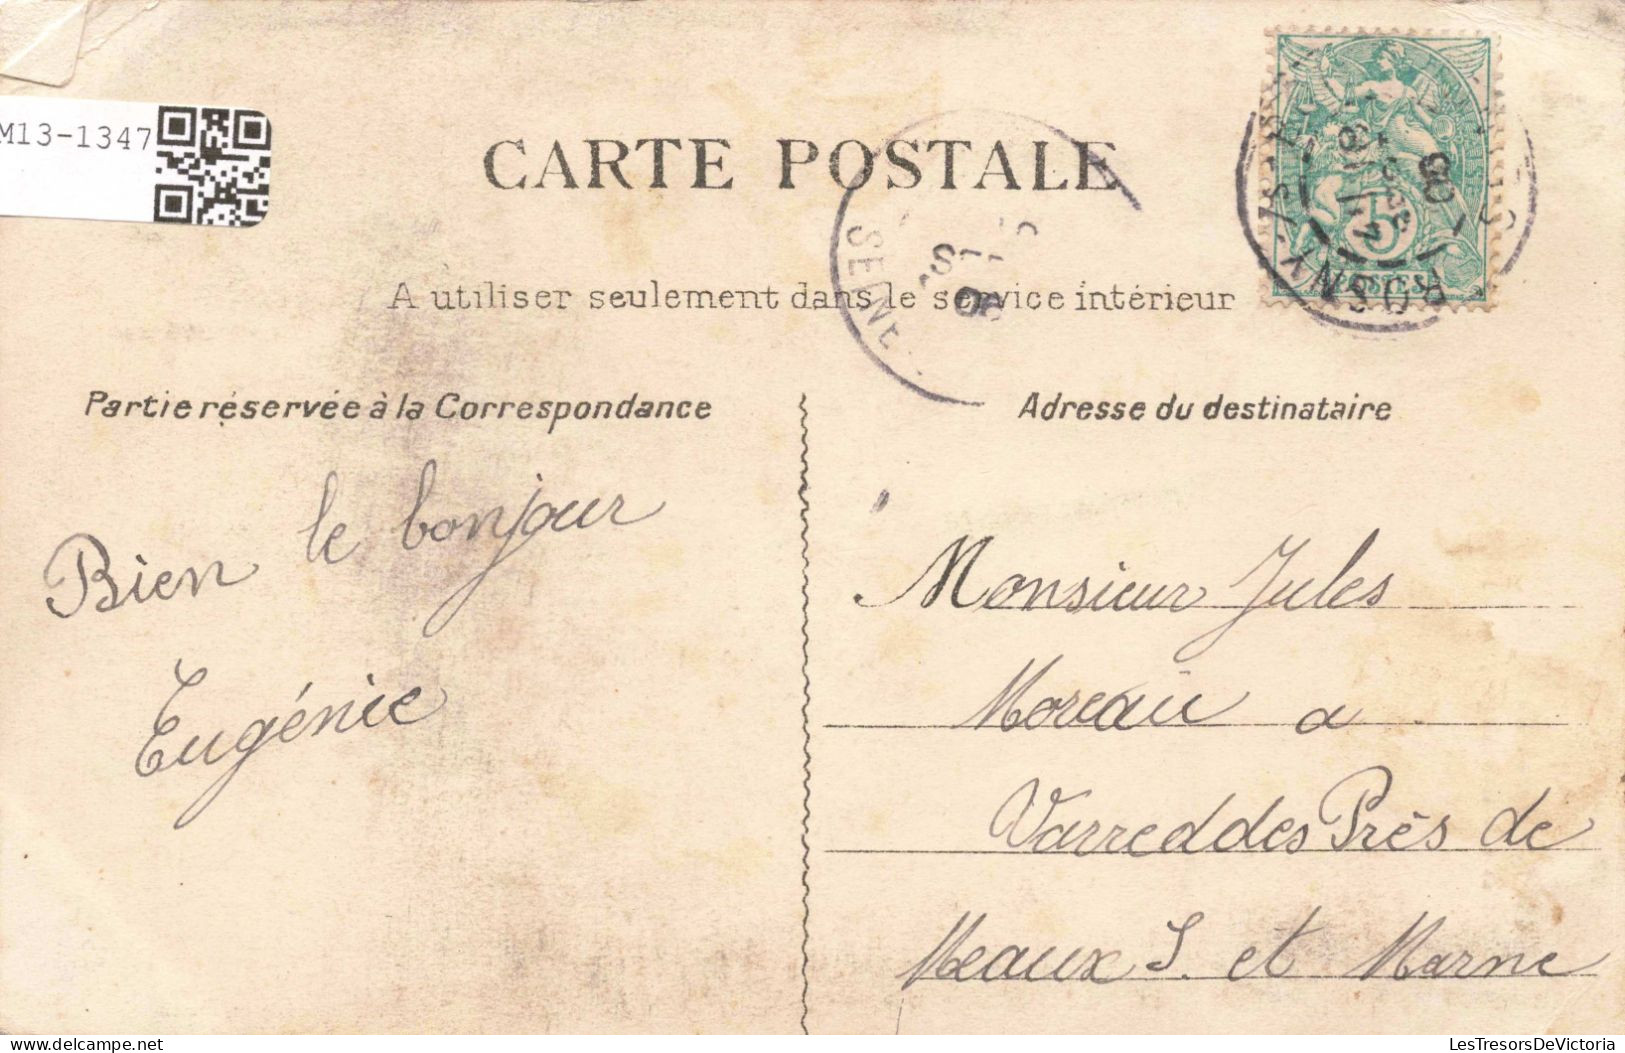 M13-1347
CARTE POSTALE
A utiliser seulement dans le service intérieur
Partie réservée à la Correspondance
Adresse du destinataire
Bien le bonjour
Eugénie
Monsieur Jules
Moreau a
Varreddes Près de
Meaux S. et Marne
5
POSTES
ROSNY S/S
SEINE
LesTresorsDeVictoria